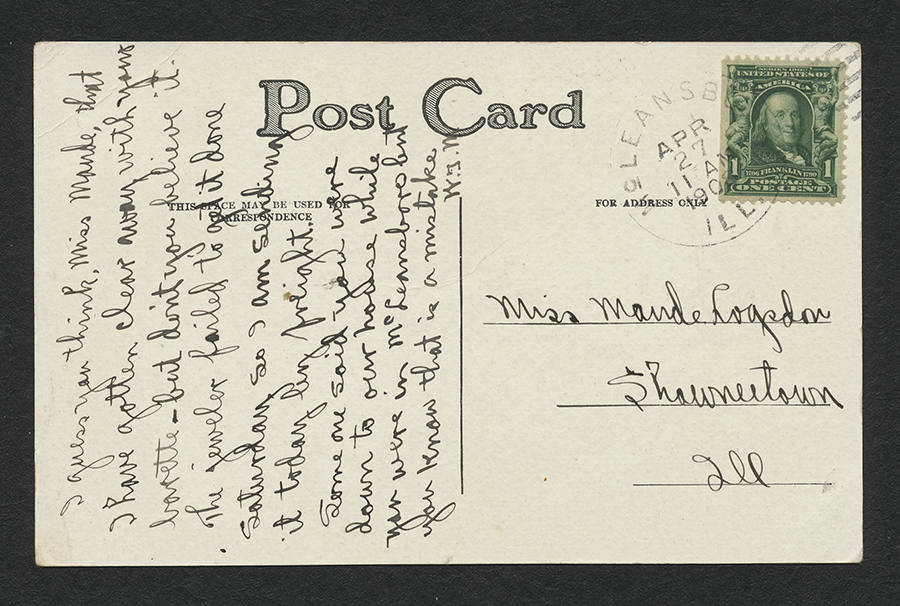 Post Card
THIS SPACE MAY BE USED FOR
CORRESPONDENCE
FOR ADDRESS ONLY
I guess you think, Miss Maude, that
I have gotten clear away with your
barette - but don't you believe it.
The jeweler failed to get it done
Saturday, so I am sending
it today by freight.
Some one said you were
down to our house while
you were in McLeansboro but
you know that is a mistake.
W.I.
McLEANSB
APR
27
11 AM
190
ILL.
SERIES 1902
UNITED STATES OF
AMERICA
1 1
1706 FRANKLIN 1790
POSTAGE
ONE CENT
Miss Maude Logsdon
Shawneetown
Ill